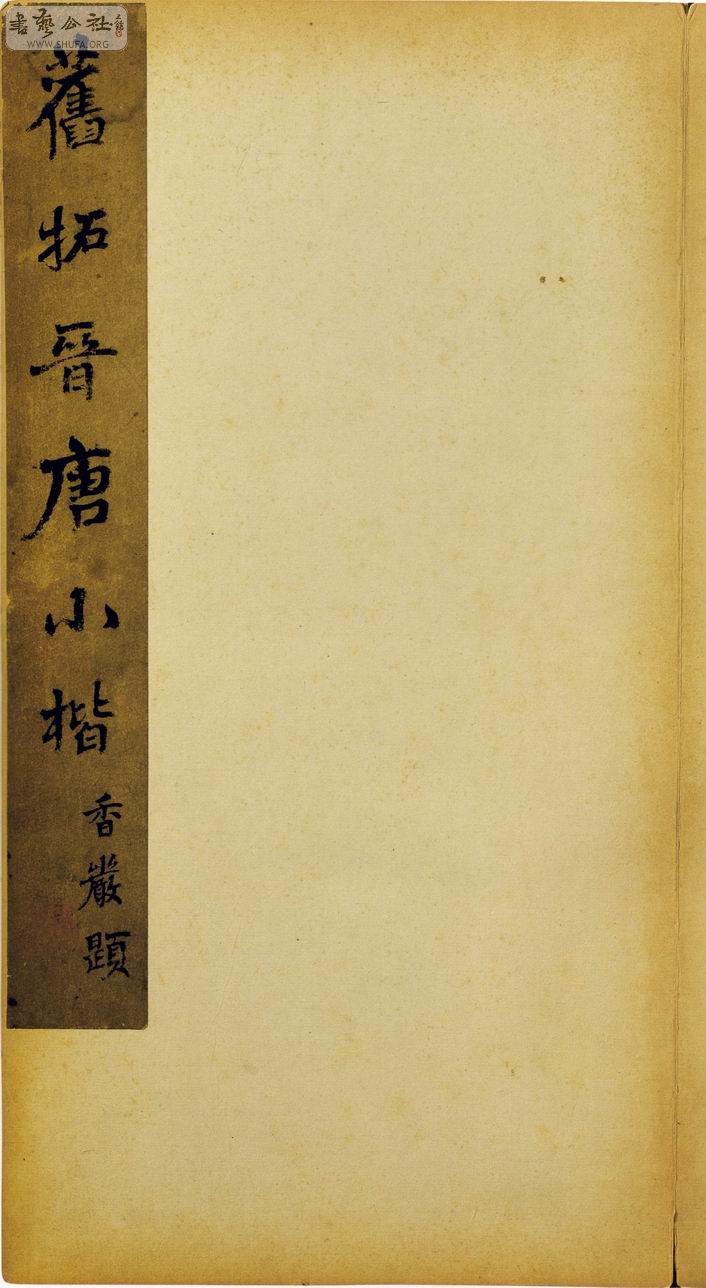 書藝公社
WWW.SHUFA.ORG
舊拓晉唐小楷
香巖題